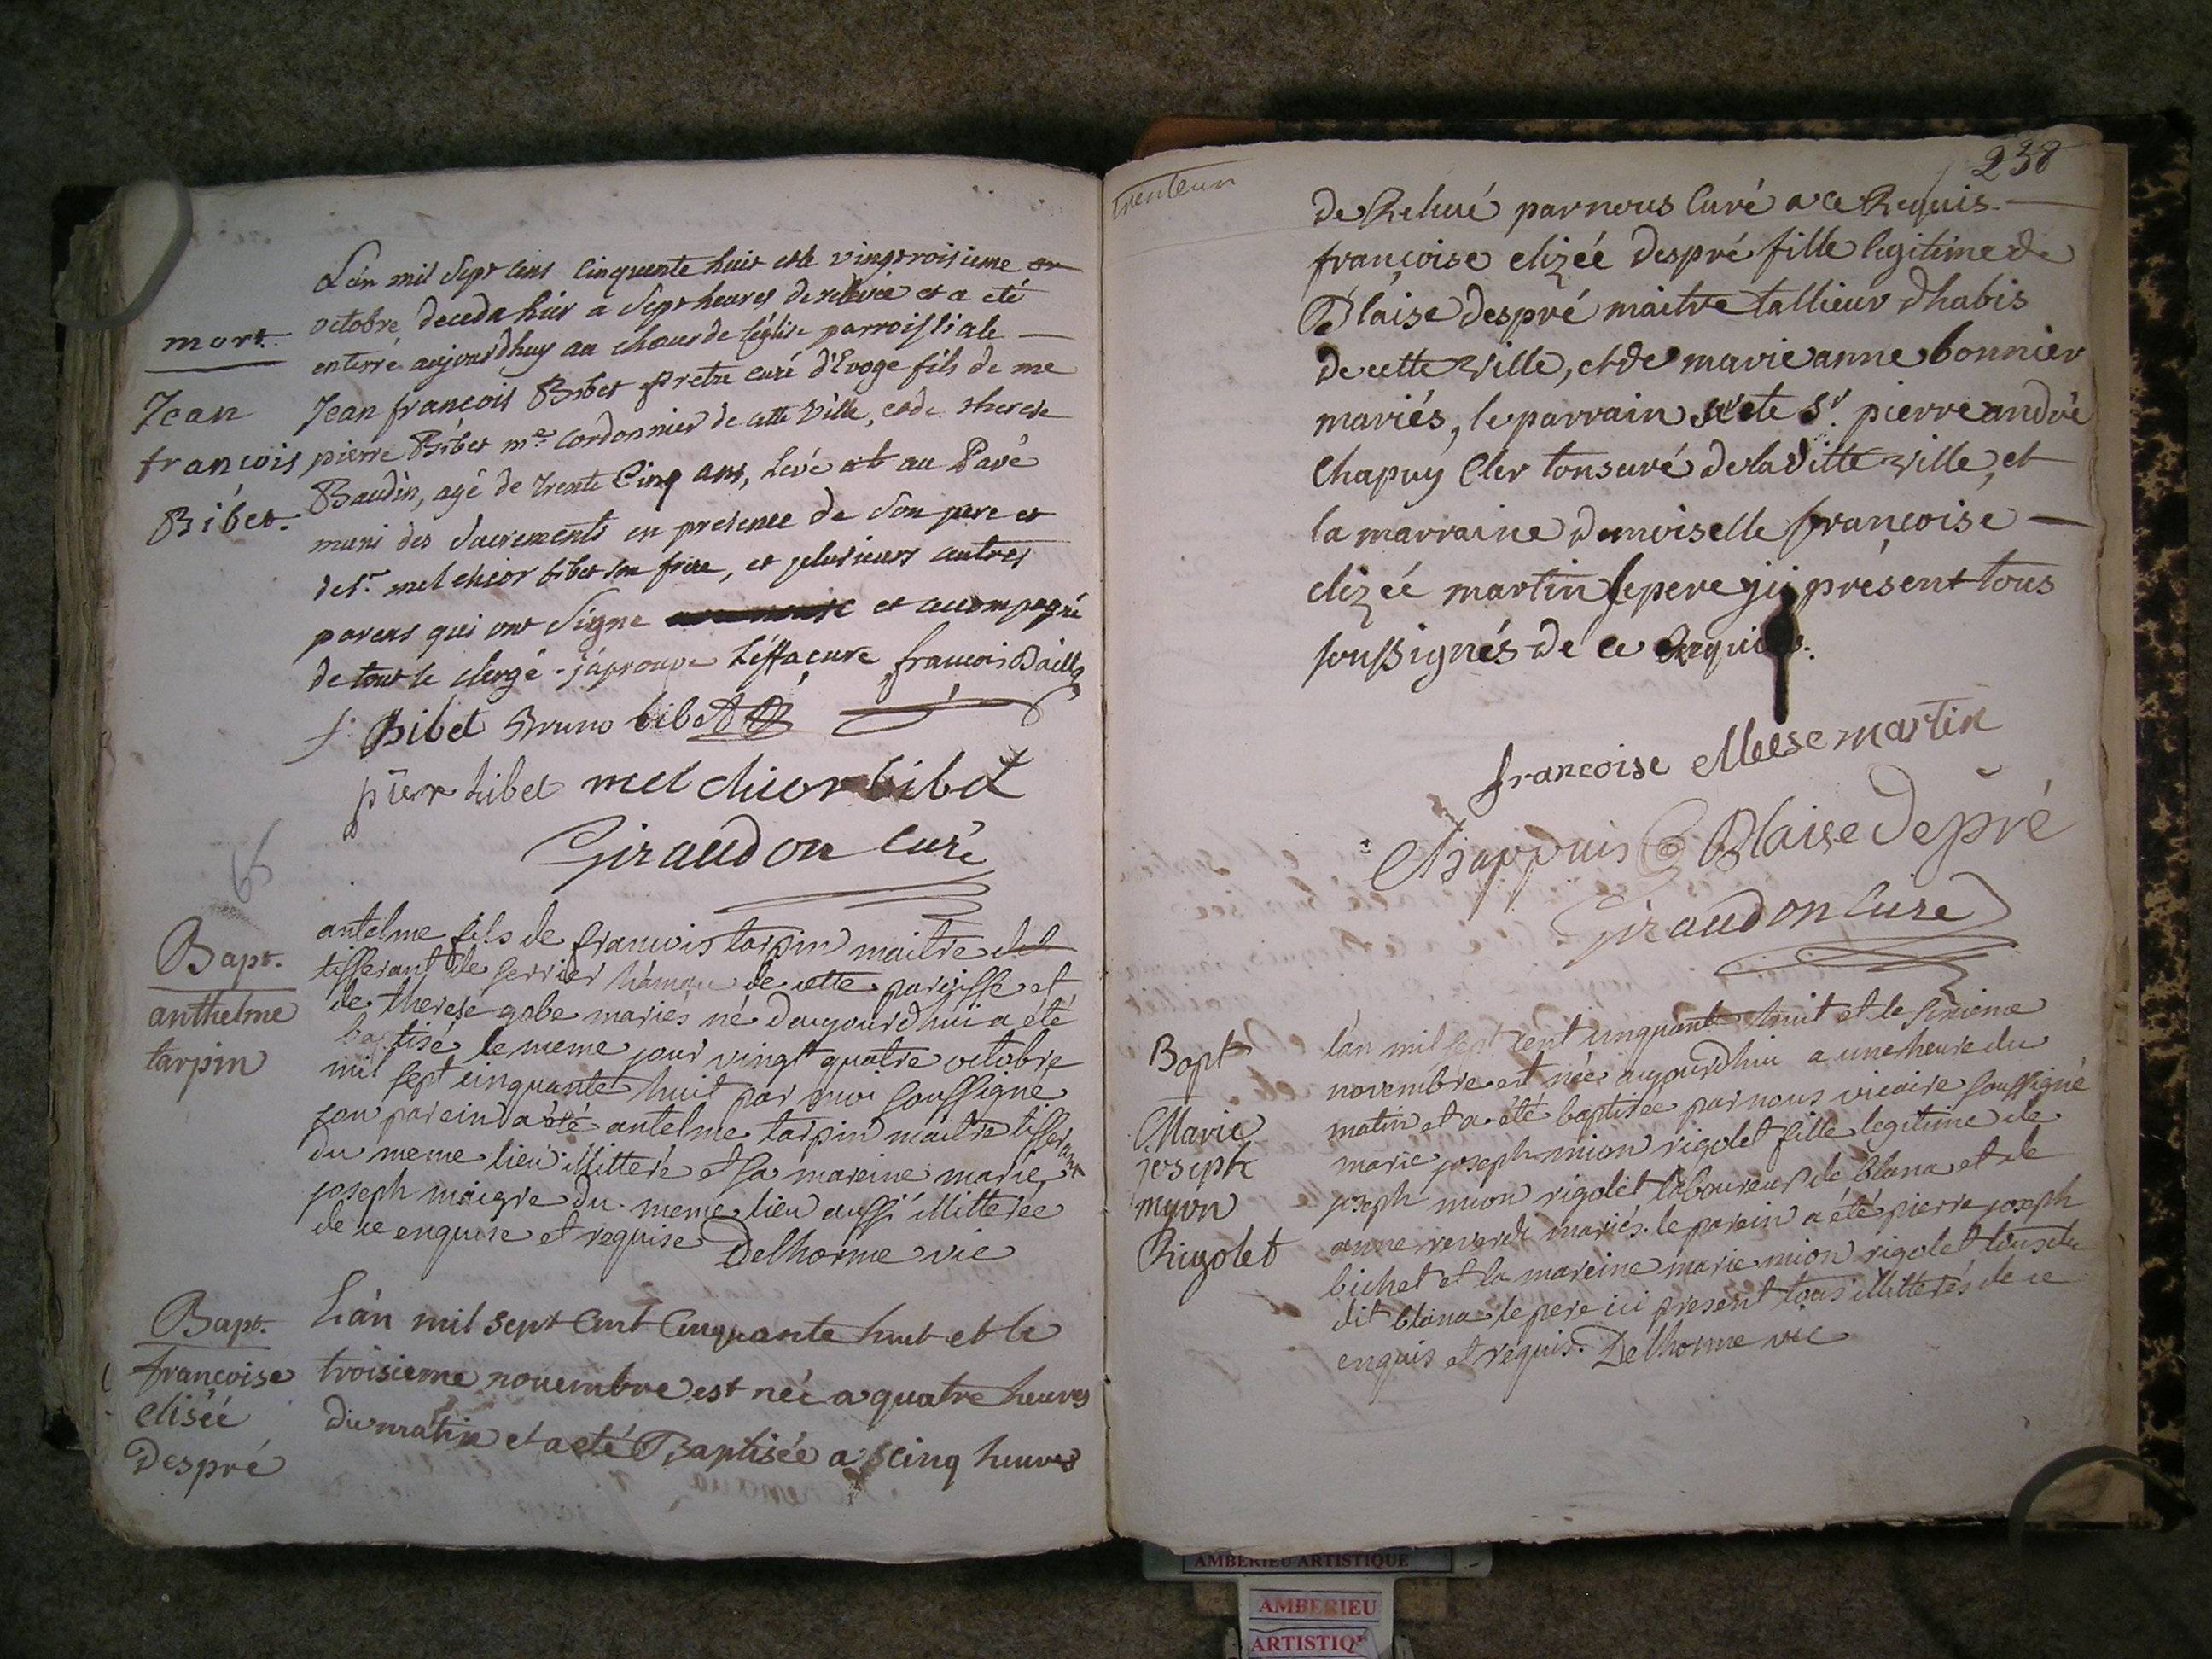 mort
Jean
françois
Bibet.
L'an mil sept cens cinquente huit et le vingtroisieme
octobre deceda hier a sept heures de relevée et a eté
enterré aujourdhuy au chœur de l'église parroissiale
Jean françois Bibet pretre curé d'Evoge fils de me
pierre Bibet me cordonnier de cette ville, et de therese
Baudin, agé de trente cinq ans, levé au Pavé
muni des sacrements en presence de son pere et
de sr. melchior bibet son frere, et plusieurs autres
parens qui ont signe et accompagné
de tout le clergé - j'approuve l'éffacure françois Bailly
f. Bibet Bruno bibet
pierr bibet melchior bibet
Giraudon curé
Bapt.
anthelme
tarpin
antelme fils de francois tarpin maitre
tisserant de serrier hameau de cette paroisse et
de therese gobe mariés né d'aujourdhui a été
baptisé le meme jour vingt quatre octobre
mil sept cinquante huit par moi soussigné
son parein a été antelme tarpin maitre tisserant
du meme lieu illitteré et sa mareine marie
joseph maigre du meme lieu aussi illitterée
de ce enquise et requise Delhorme vic
Bapt.
françoise
elisée
Despré
L'an mil sept cent cinquante huit et le
troisieme novembre est née a quatre heures
du matin et a eté Baptisée a cinq heures
trenteun
238
de Relevé par nous Curé a ce Requis.
françoise elizée despré fille legitime de
Blaise despré maitre tallieur dhabis
de cette ville, et de marie anne bonnier
mariés, le parrain a ete Sr. pierre andré
Chapuy Cler tonsuré de la ditte ville, et
la marraine demoiselle françoise
elizée martin le pere ji présent tous
soussignés de ce Requis.
francoise martin
Chappuis Blaise Depré
Giraudon Curé
Bapt
Marie
joseph
myon
Rigolet
lan mil sept cent cinquante huit et le sixieme
novembre est née aujourdhui a une heure du
matin et a été baptisée par nous vicaire soussigné
marie joseph mion rigolet fille legitime de
joseph mion rigolet laboureur de blana et de
anne reverdi mariés. le parein a été pierre joseph
bichet et la mareine marie mion rigolet tous du
dit blana le pere ici present tous illitterés de ce
enquis et requis. Delhorme vic
AMBERIEU ARTISTIQUE
AMBERIEU
ARTISTIQ